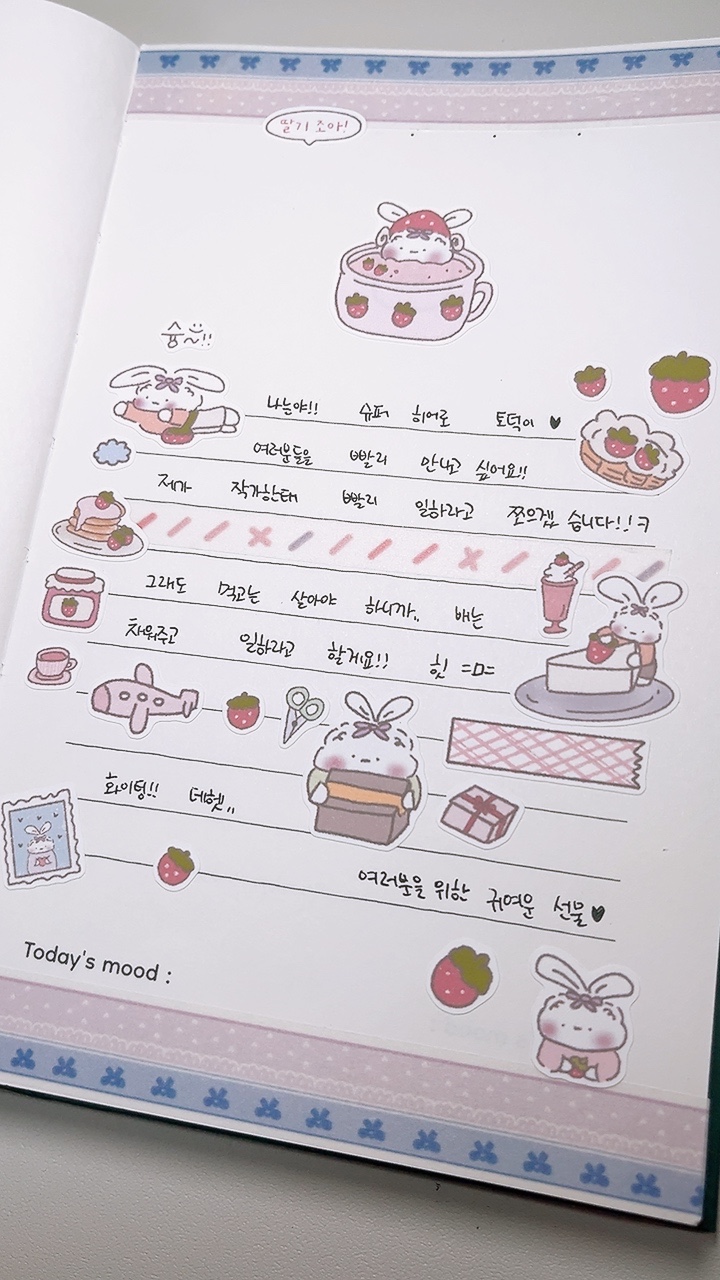 딸기 조아!
슝~!!
나는야!! 슈퍼 히어로 토덕이 ♥
여러분들을 빨리 만나고 싶어요!!
제가 작가한테 빨리 일하라고 쪼으겠습니다!!ㅋ
그래도 먹고는 살아야 하니까.. 배는
채워주고 일하라고 할게요!! 힛 =ㅁ=
화이팅!! 데헷..
여러분을 위한 귀여운 선물♥
Today's mood :